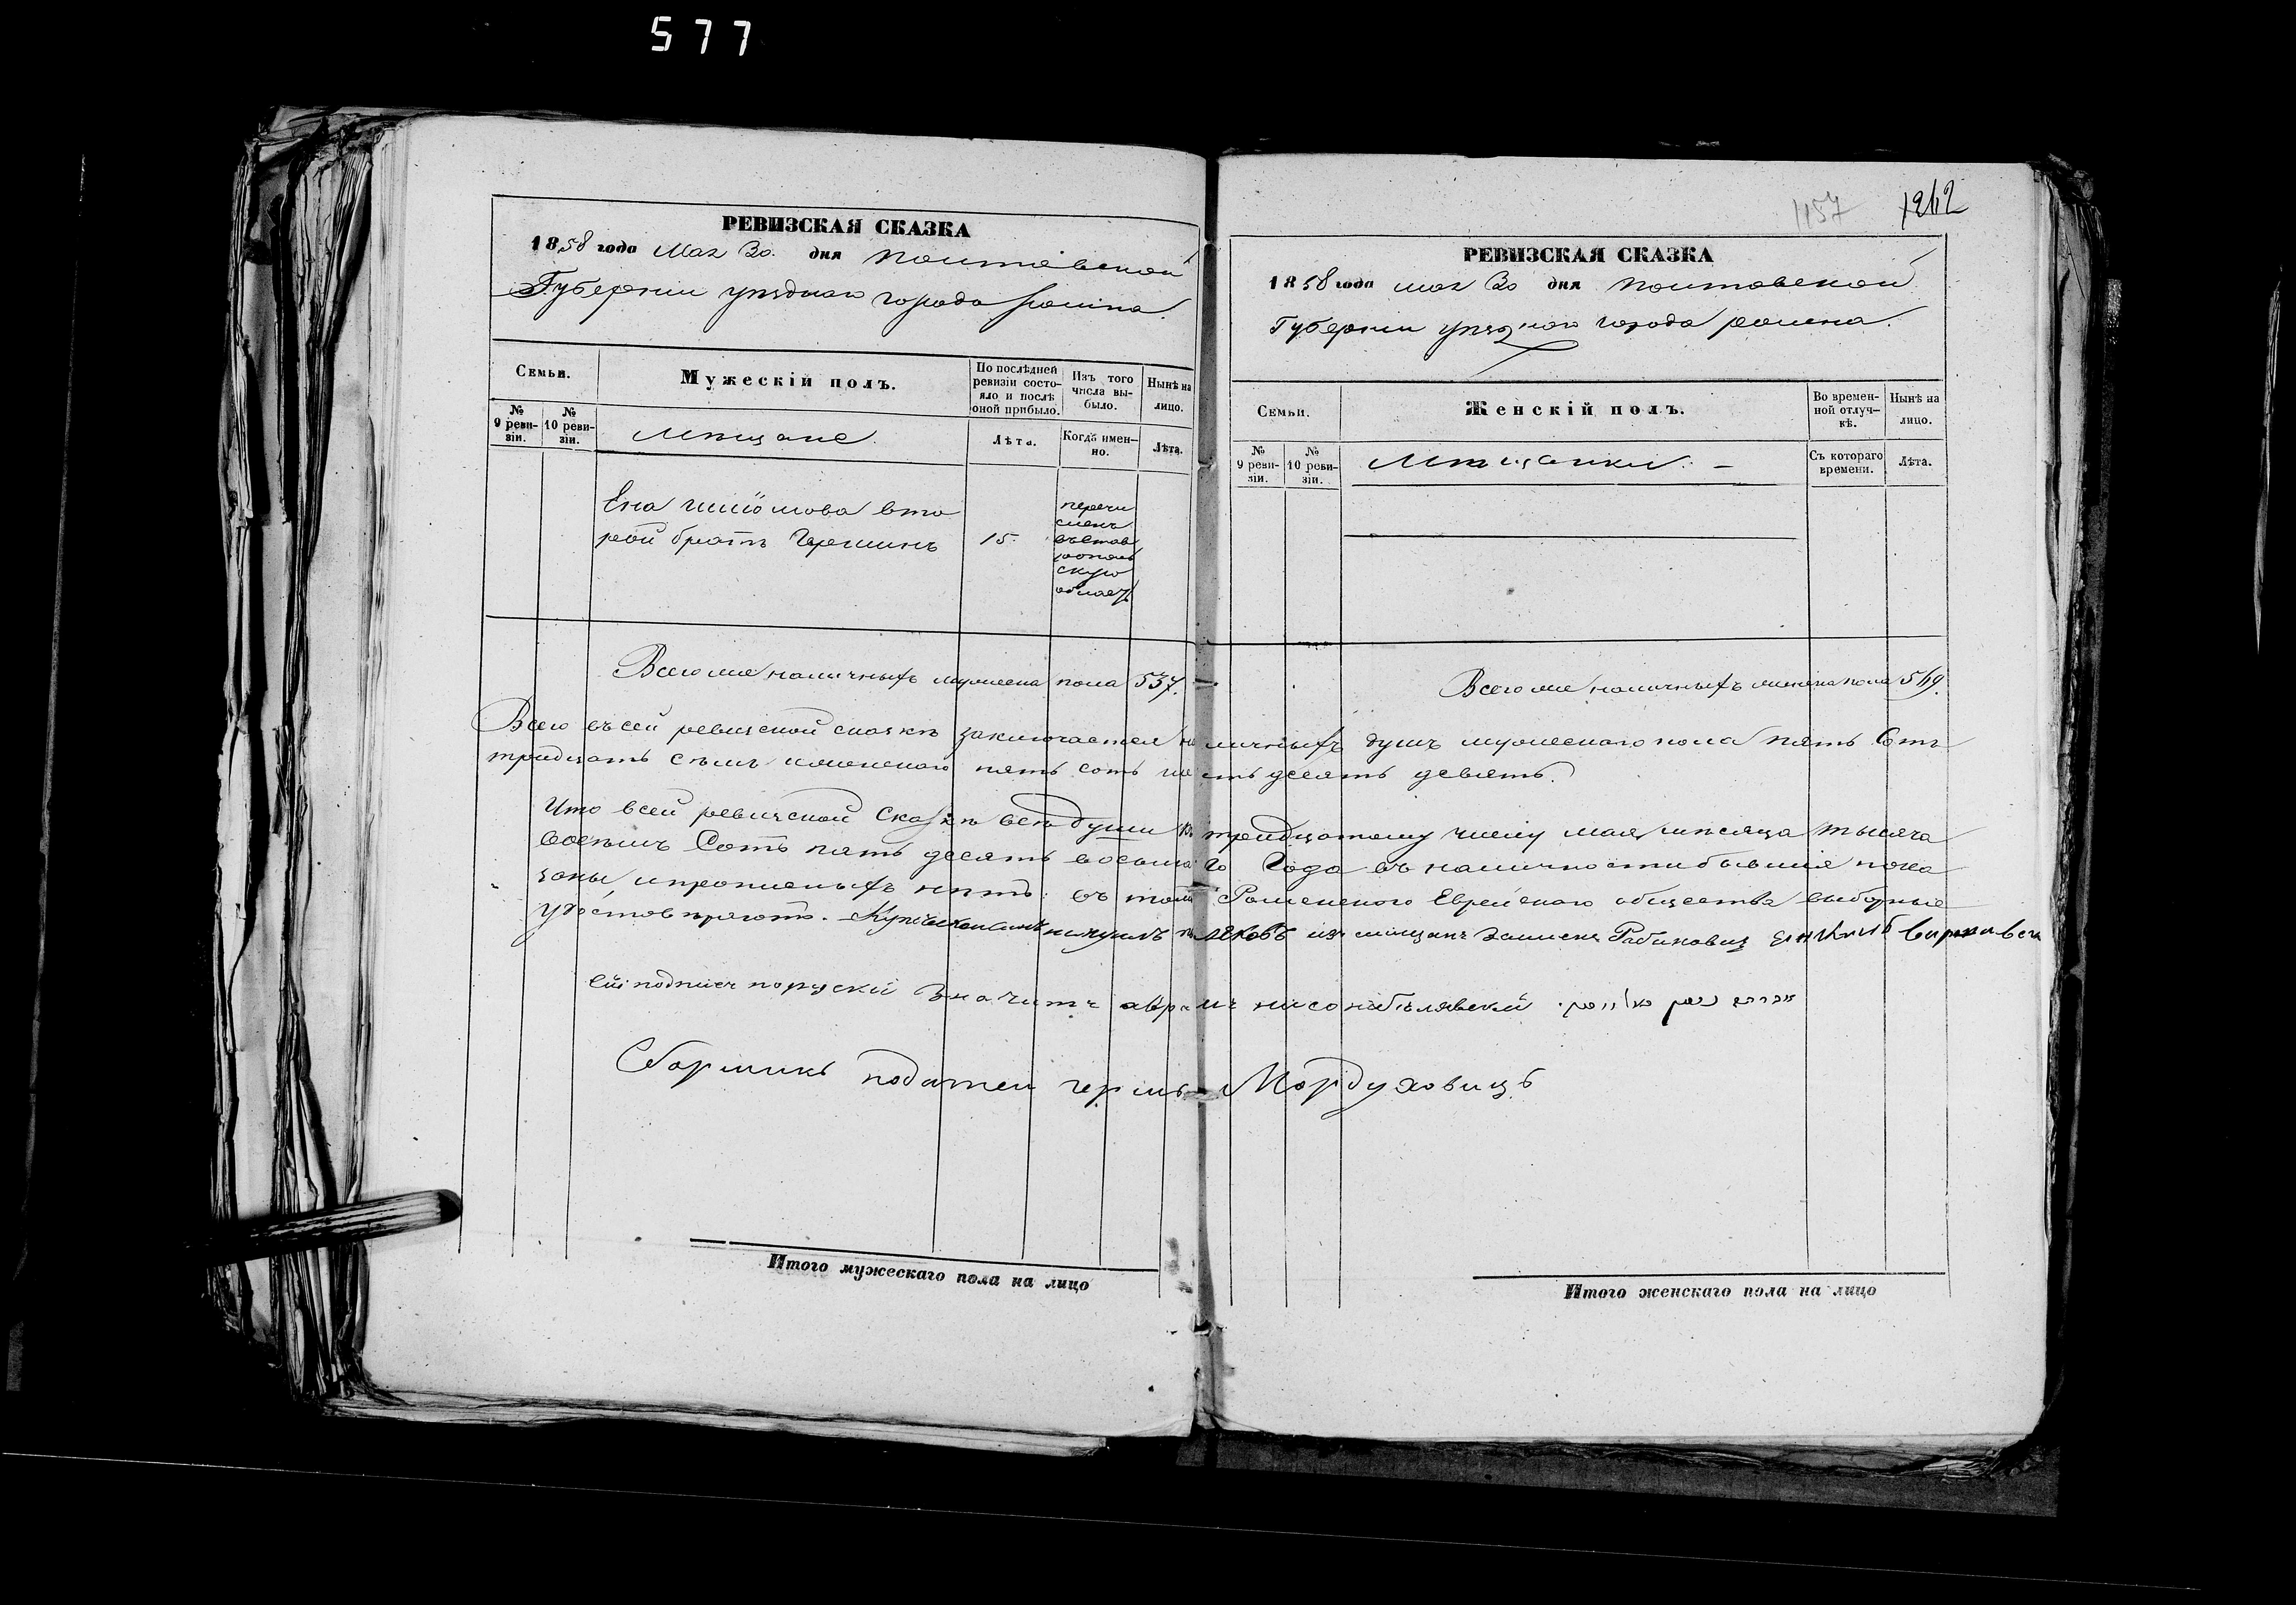 577
РЕВИЗСКАЯ СКАЗКА
1858 года Мая 30. дня Полтавской
Губерніи уѣзднаго города Ромна.
Семьи.
№ 9 реви-зіи.
№ 10 реви-зіи.
Мужескій полъ.
Мѣщане.
По послѣдней
ревизіи состо-
яло и послѣ
оной прибыло.
Лѣта.
Изъ того
числа вы-
было.
Когда имен-
но.
Нынѣ на
лицо.
Лѣта.
Его вто
рой братъ Гершинъ
15.
перечи
сленъ
въ став
рополь
скую
област
Всего же наличныхъ мужеска пола 537.
1157 1212
РЕВИЗСКАЯ СКАЗКА
1858 года мая 30 дня Полтавской
Губерніи уѣзднаго города ромна.
Семьи.
№ 9 реви-зіи.
№ 10 реви-зіи.
Женскій полъ.
Мѣщанки. –
Во времен-
ной отлуч-
кѣ.
Съ котораго
времени.
Нынѣ на
лицо.
Лѣта.
Всего же наличныхъ женска пола 569.
Всего въ сей ревизской сказкѣ заключается наличныхъ душъ мужескаго пола пять Сотъ
тридцать семь и женскаго пять сотъ шестьдесятъ девять.
Что в сей ревизской Сказкѣ всѣ души къ тридцатому числу мая мѣсяца тысяча
восемь Сотъ пять десятъ восьмаго Года въ наличности бывшіе пока
заны, и прописныхъ нѣтъ. въ томъ Роменскаго Еврейскаго общества выборные
удостовѣряютъ. из мещанъ Рабиновиц
ей подписи поруски значитъ аврамъ нисонъ бѣлявский
Сборщикъ податей Мордуховицъ
Итого мужескаго пола на лицо
Итого женскаго пола на лицо